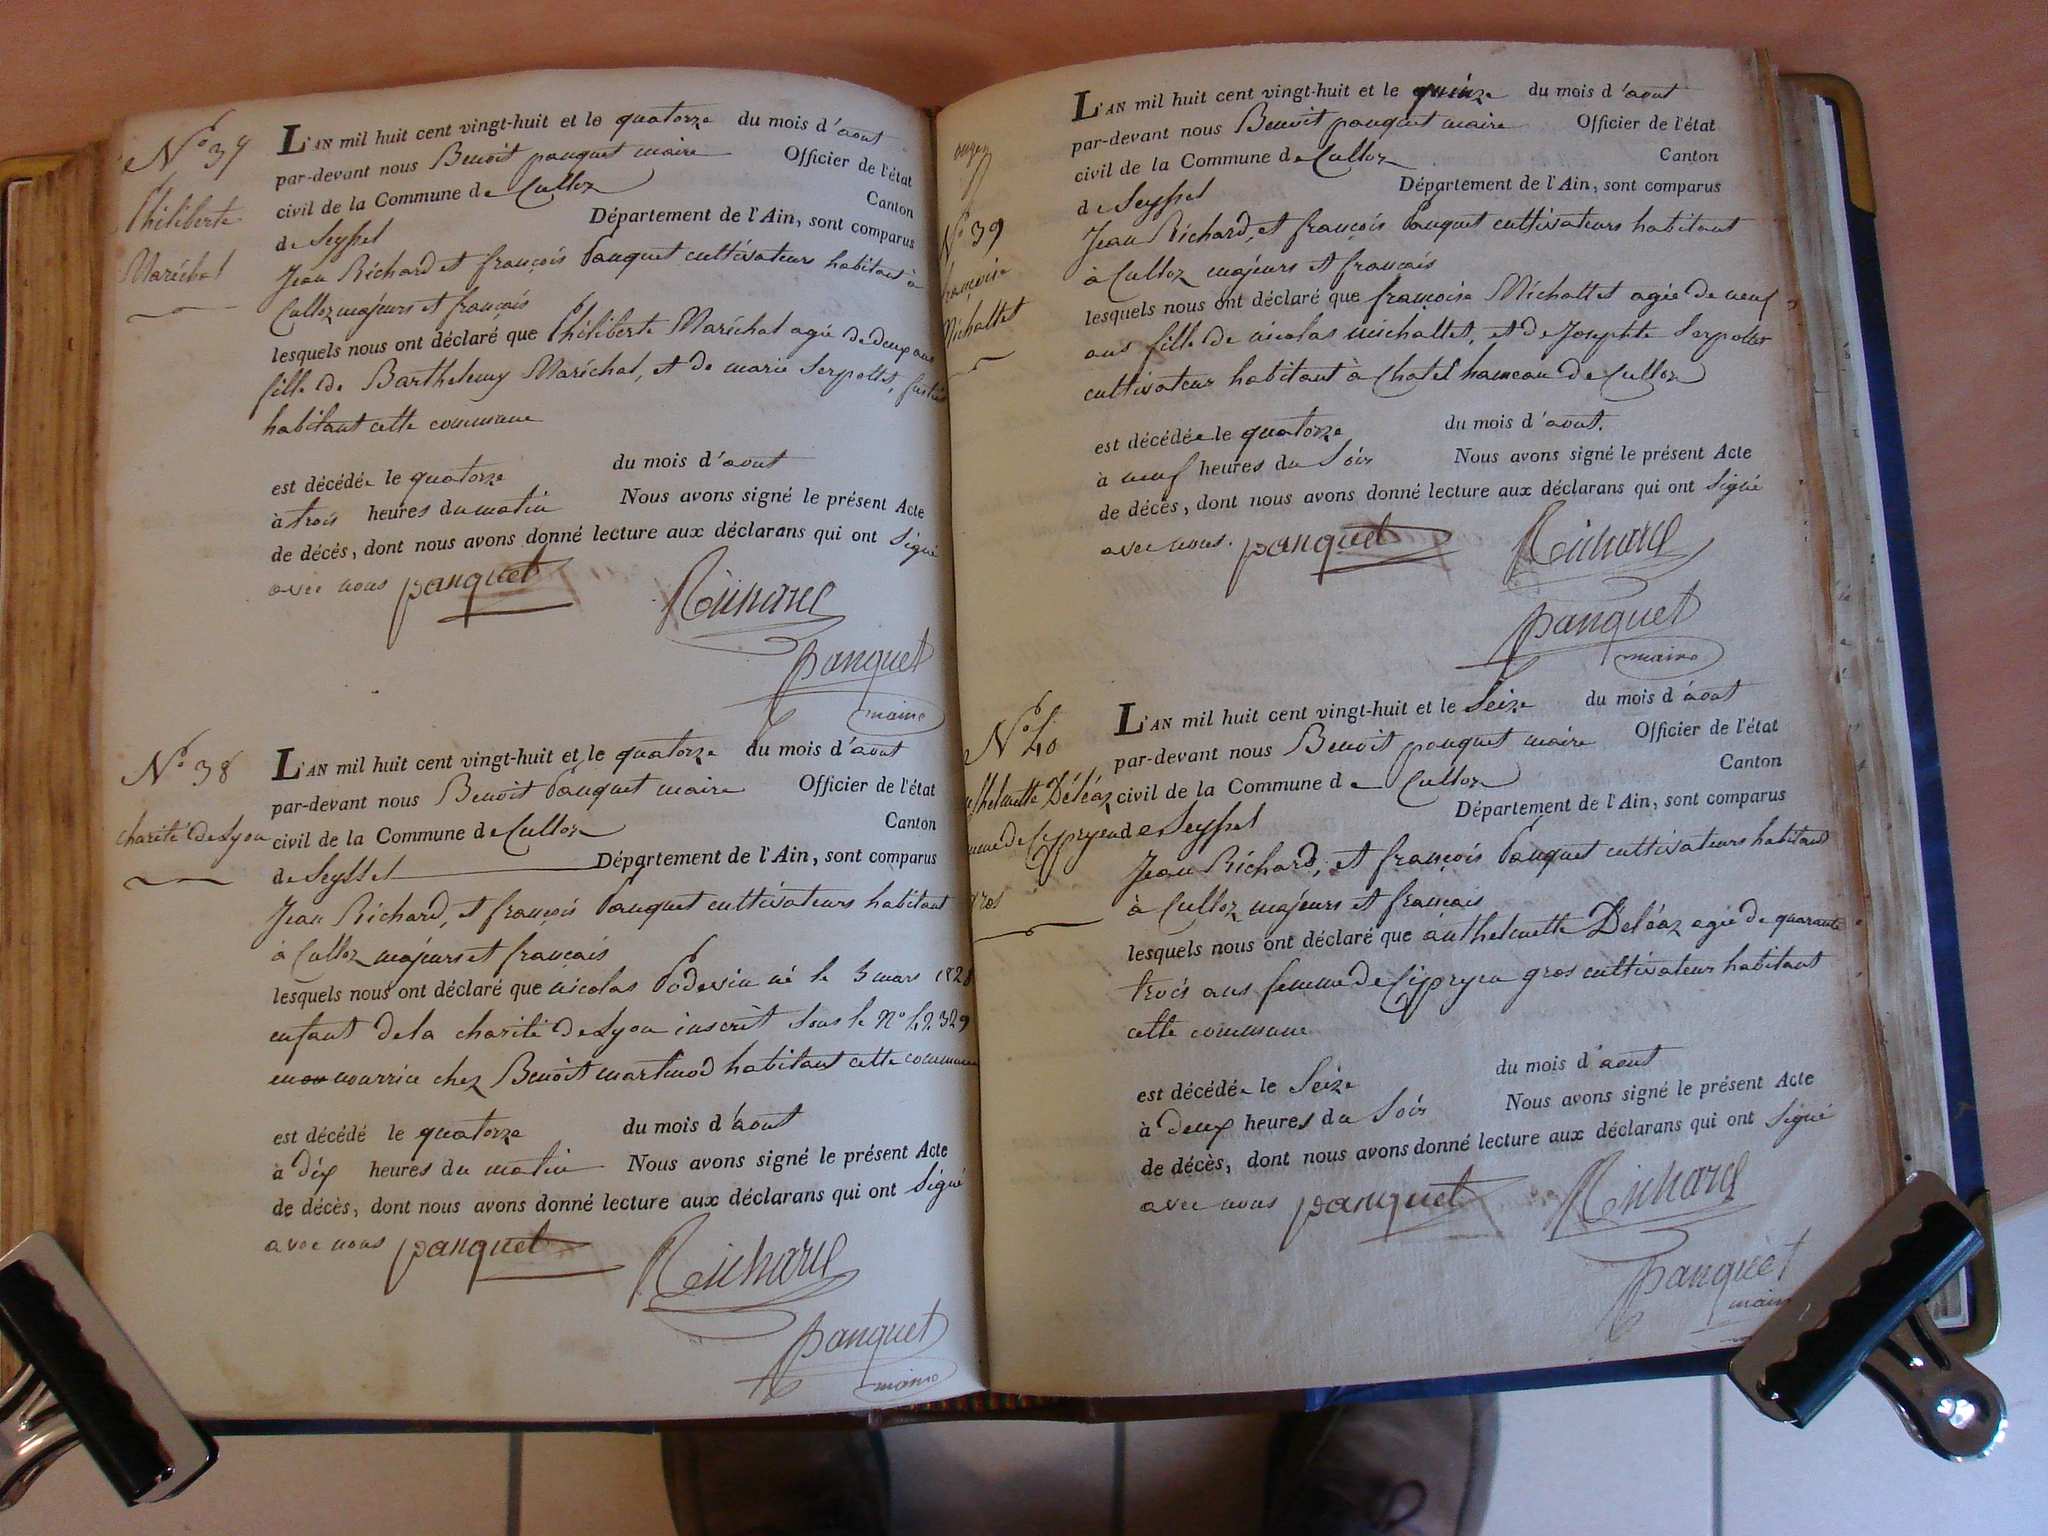 No 37
Philiberte
Maréchal
L'AN mil huit cent vingt-huit et le quatorze du mois d'aout
par-devant nous Benoit panquet maire Officier de l'état
civil de la Commune de Culloz Canton
de Seyssel Département de l'Ain, sont comparus
Jean Richard, et françois Panquet cultivateurs habitant à
Culloz majeurs et français
lesquels nous ont déclaré que Philiberte Maréchal agée de deux ans
fille de Barthelemy Maréchal, et de marie Serpollet,
habitant cette commune
est décédée le quatorze du mois d'aout
à trois heures du matin Nous avons signé le présent Acte
de décés, dont nous avons donné lecture aux déclarans qui ont signé
avec nous panquet Richard
panquet
maire
No 38
charité de Lyon
L'AN mil huit cent vingt-huit et le quatorze du mois d'aout
par-devant nous Benoit Panquet maire Officier de l'état
civil de la Commune de Culloz Canton
de Seyssel Département de l'Ain, sont comparus
Jean Richard, et françois Panquet cultivateurs habitant
à Culloz majeurs et français
lesquels nous ont déclaré que nicolas Podevin né le 3 mars 1828
enfant de la charité de Lyon inscrit sous le No 42329
en nourrice chez Benoit martinod habitant cette commune
est décédé le quatorze du mois d'aout
à dix heures du matin Nous avons signé le présent Acte
de décès, dont nous avons donné lecture aux déclarans qui ont signé
avec nous panquet Richard
panquet
maire
onzen
No 39
françoise
Michallet
L'AN mil huit cent vingt-huit et le quinze du mois d'aout
par-devant nous Benoit panquet maire Officier de l'état
civil de la Commune de Culloz Canton
de Seyssel Département de l'Ain, sont comparus
Jean Richard, et françois Panquet cultivateurs habitant
à Culloz majeurs et français
lesquels nous ont déclaré que françoise Michallet agée de neuf
ans fille de nicolas michallet, et de Josephte Serpollet
cultivateur habitant à Chatel hameau de Culloz
est décédée le quatorze du mois d'aout.
à neuf heures du Soir Nous avons signé le présent Acte
de décès, dont nous avons donné lecture aux déclarans qui ont signé
avec nous. panquet Richard
panquet
maire
No 40
anthelmette Déléaz
femme de Cipryen
gros
L'AN mil huit cent vingt-huit et le Seize du mois d'aout
par-devant nous Benoit panquet maire Officier de l'état
civil de la Commune de Culloz Canton
de Seyssel Département de l'Ain, sont comparus
Jean Richard, et françois Panquet cultivateurs habitant
à Culloz majeurs et français
lesquels nous ont déclaré que anthelmette Déléaz agée de quarante
trois ans femme de Cipryen gros cultivateur habitant
cette commune
est décédée le Seize du mois d'aout
à deux heures du Soir Nous avons signé le présent Acte
de décès, dont nous avons donné lecture aux déclarans qui ont signé
avec nous panquet Richard
panquet
maire